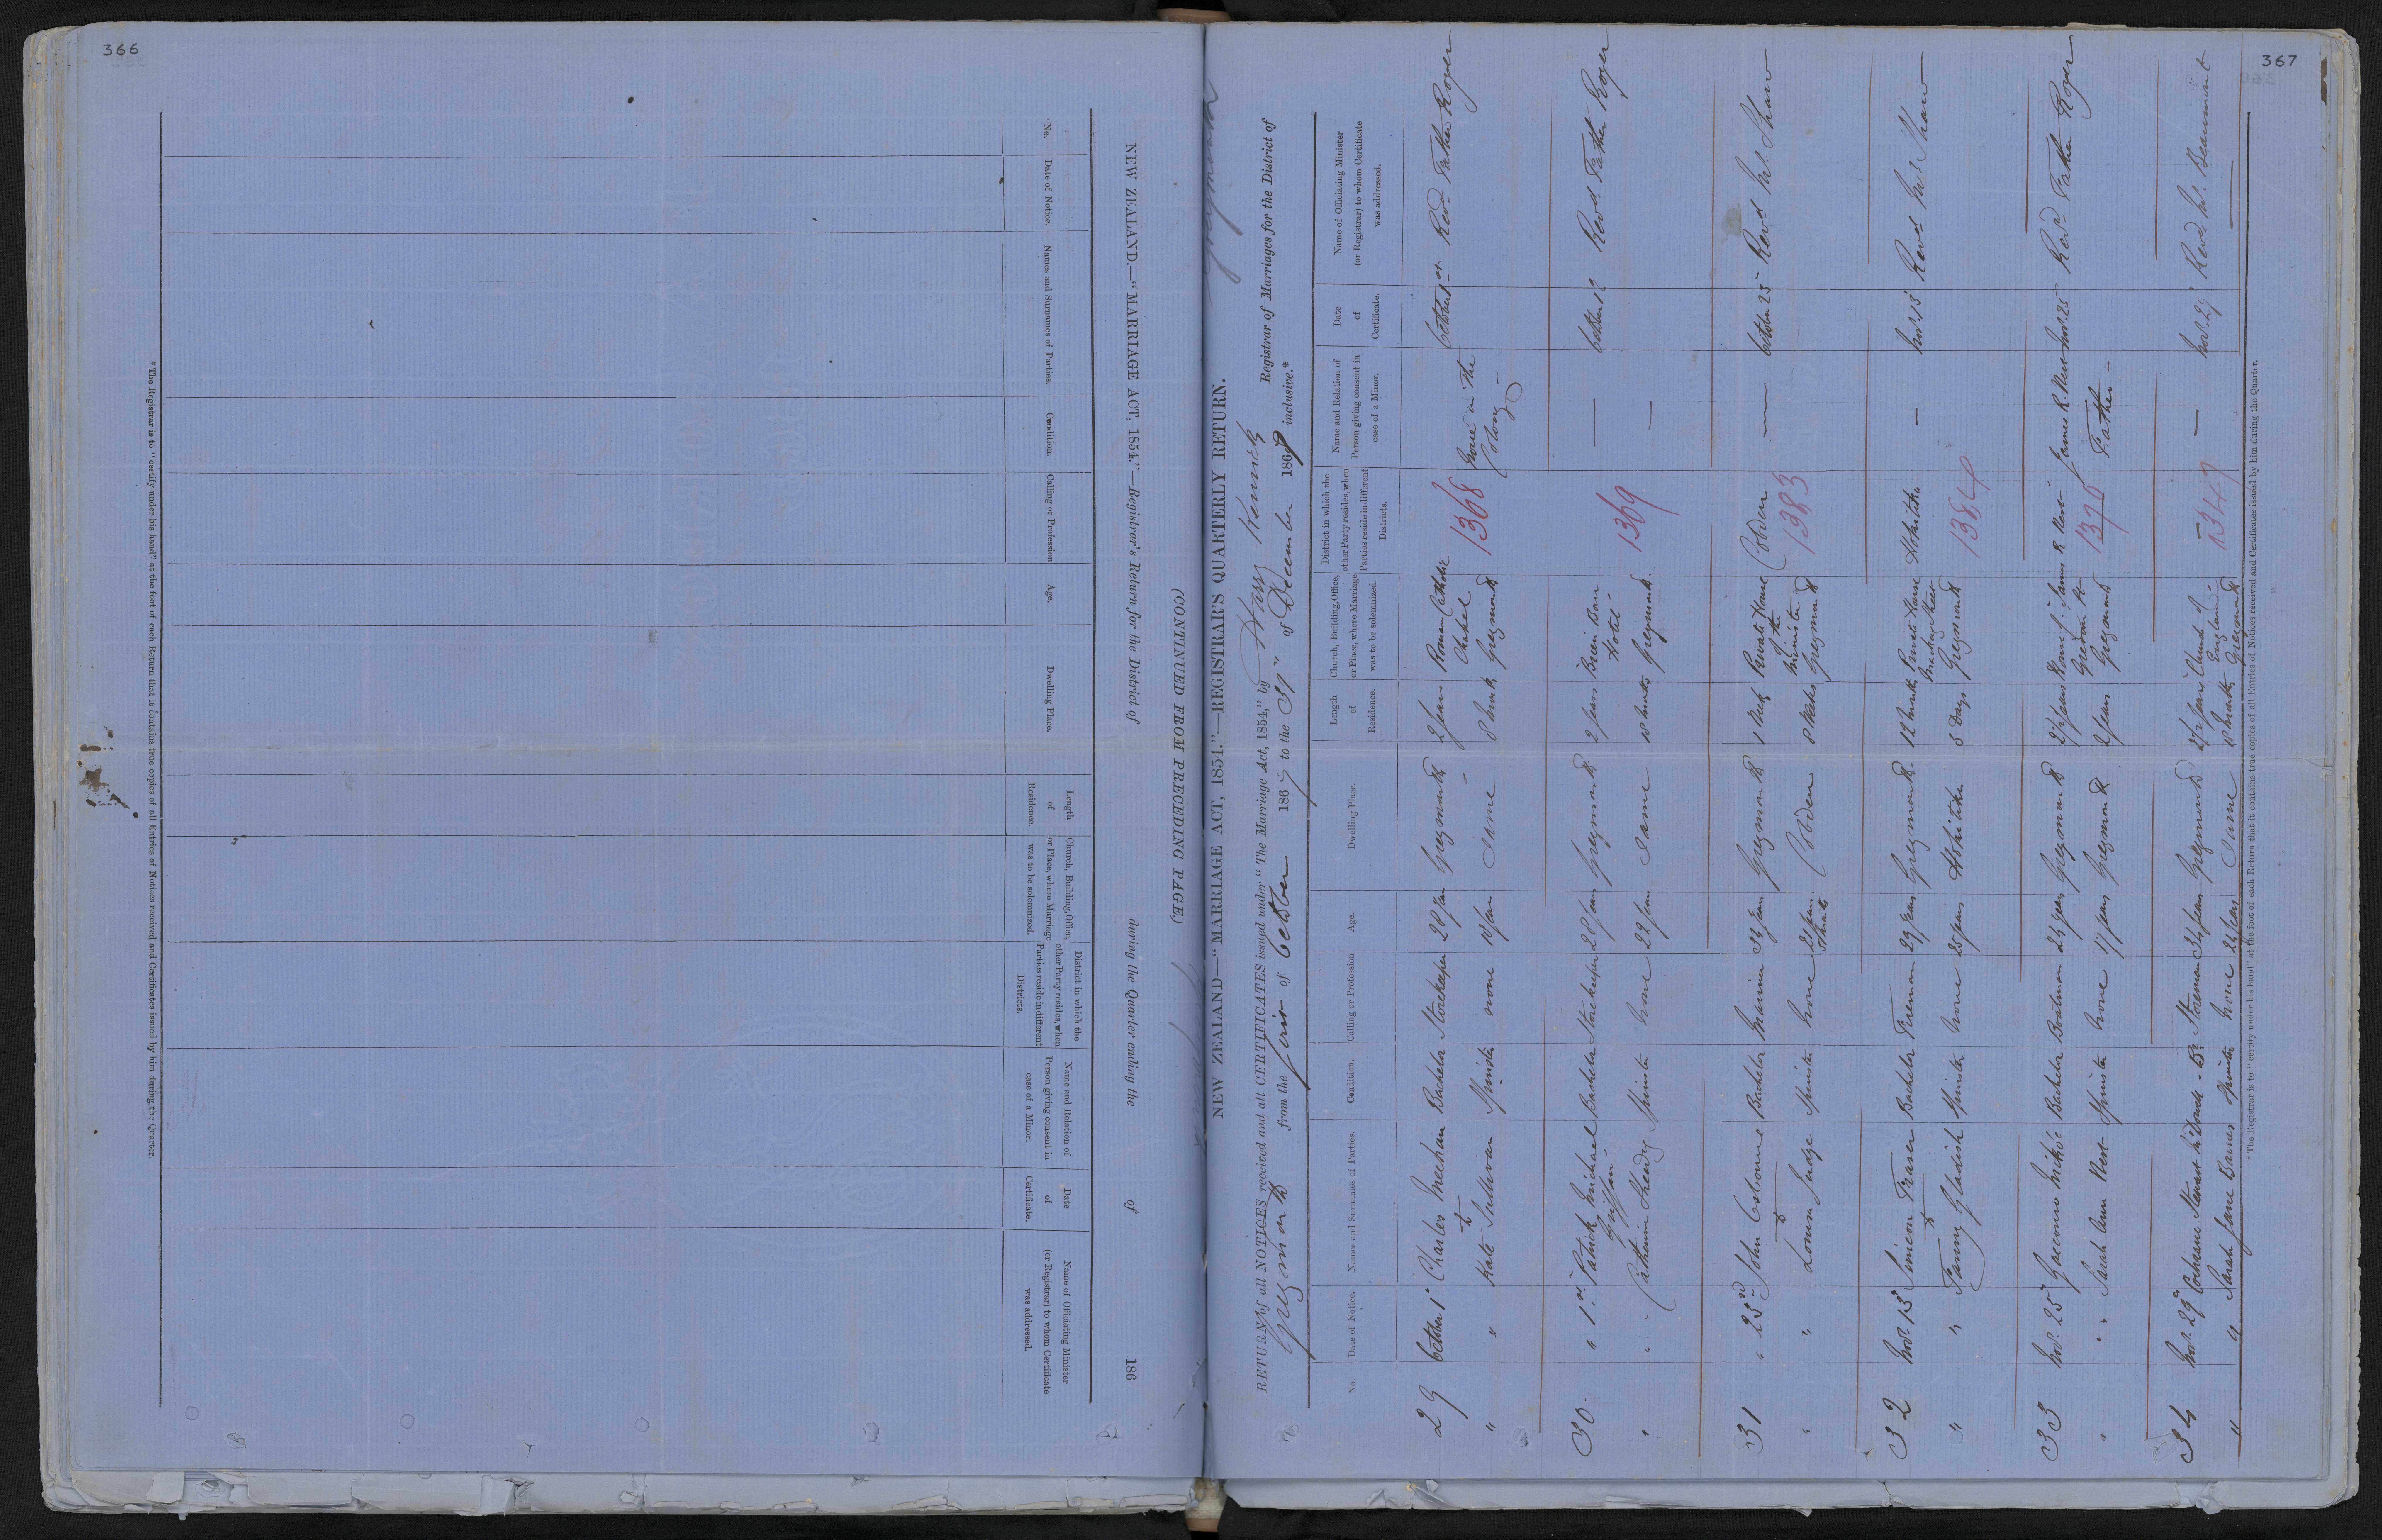 366
NEW ZEALAND.—"MARRIAGE ACT, 1854."—Registrar's Return for the District of during the Quarter ending the of 186
(CONTINUED FROM PRECEDING PAGE.)
No.
Date of Notice.
Names and Surnames of Parties.
Condition.
Calling or Profession
Age.
Dwelling Place.
Length
of
Residence.
Church, Building, Office,
or Place, where Marriage
was to be solemnized.
District in which the
other Party resides, when
Parties reside in different
Districts.
Name and Relation of
Person giving consent in
case of a Minor.
Date
of
Certificate.
Name of Officiating Minister
(or Registrar) to whom Certificate
was addressed.
*The Registrar is to "certify under his hand" at the foot of each Return that it contains true copies of all Entries of Notices received and Certificates issued by him during the Quarter.
367
NEW ZEALAND—"MARRIAGE ACT, 1854."—REGISTRAR'S QUARTERLY RETURN.
RETURN of all NOTICES received and all CERTIFICATES issued under "The Marriage Act, 1854," by Harry Kenrick Registrar of Marriages for the District of
Greymouth from the first of October 1867 to the 31st of December 1867 inclusive.*
No.
Date of Notice.
Names and Surnames of Parties.
Condition.
Calling or Profession
Age.
Dwelling Place.
Length
of
Residence.
Church, Building, Office,
or Place, where Marriage
was to be solemnized.
District in which the
other Party resides, when
Parties reside in different
Districts.
Name and Relation of
Person giving consent in
case of a Minor.
Date
of
Certificate.
Name of Officiating Minister
(or Registrar) to whom Certificate
was addressed.
29 October 1st Charles Meehan Bachelor Storekeeper 28 years Greymouth 2 years Roman Catholic Chapel Greymouth 1368 None in the Colony October 1st Revd Father Royer
" " to Kate Sullivan Spinster none 18 years Same 8 months
30 " 1st Patrick Michael Griffin Bachelor Storekeeper 28 years Greymouth 2 years Brian Boru Hotel Greymouth 1369 — October 12 Revd Father Royer
" " Catherine Sheedy Spinster none 22 years Same 10 months —
31 " 23rd John Osborne Bachelor Mariner 32 years Greymouth 1 Week Private House of the Minister Greymouth Cobden 1383 — October 25 Revd Mr Shaw
" " to Louisa Judge Spinster none 21 years Cobden 8 Weeks
32 Nov. 15 Simeon Fraser Bachelor Fireman 29 years Greymouth 12 months Private House Mackay Street Greymouth Hokitika 1384 — Nov. 15 Revd Mr Shaw
" " to Fanny Gladish Spinster none 25 years Hokitika 3 Days
33 Nov. 25 Bachelor Boatman 24 years Greymouth 2½ years House of James R West Greymouth 1376 James R. West Father Nov. 25 Revd Father Royer
" " Sarah Ann West Spinster none 17 years Greymouth 2 years
34 Nov. 29 Cochrane Stewart McDowell Br Storeman 34 years Greymouth 2½ years Church of England Greymouth — 1347 — Nov. 29 Revd Mr. Beaumont
" " Sarah Jane Baines Spinster none 24 years Same 18 months